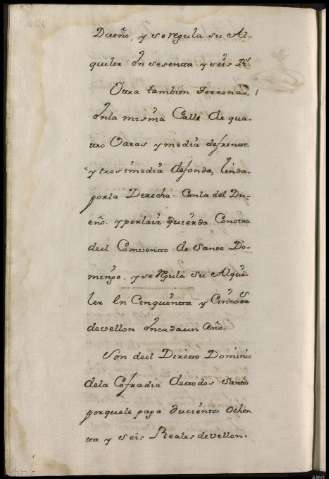 Dueño, y se regula su Al-
quiler en sesenta y seis R.
Otra tambien Terrena,
en la misma Calle de qua-
tro Varas y media de frente
y tres i media de fondo, linda
por la Derecha Con la del Du-
eño, y por la izquierda Con otra
del Comvento de Santo Do-
mingo, y se regula su Alqui-
ler En Cinquenta y Cinco R.
de vellon en cada un Año.
Son del Directo Dominio
de la Cofradia de todos Santos
por que le paga Ducientos Ochen
ta y seis Reales de vellon.